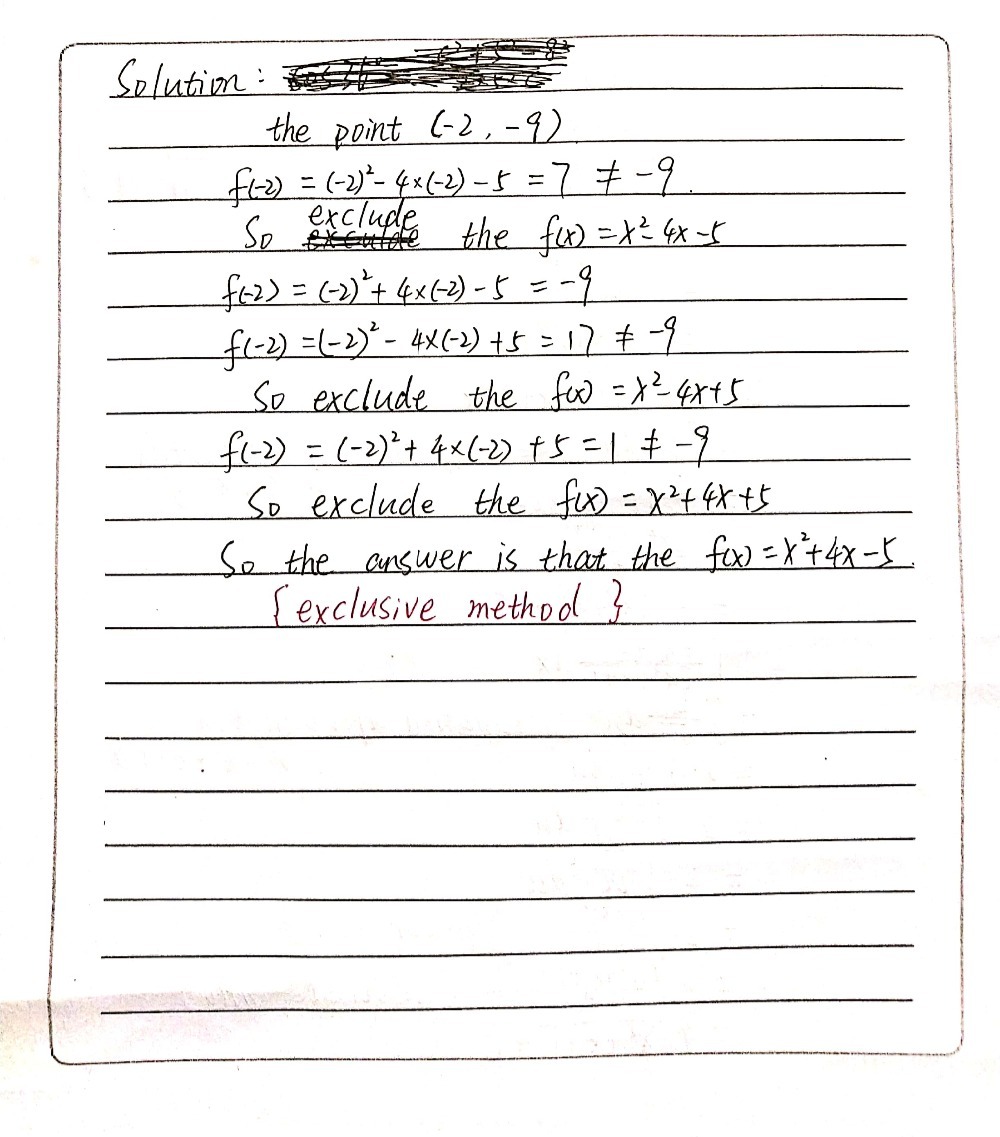 Solution:
the point (-2, -9)
f(-2) = (-2)² - 4×(-2) - 5 = 7 ≠ -9.
So exclude the f(x) = x² - 4x - 5
f(-2) = (-2)² + 4×(-2) - 5 = -9
f(-2) = (-2)² - 4×(-2) + 5 = 17 ≠ -9
So exclude the f(x) = x² - 4x + 5
f(-2) = (-2)² + 4×(-2) + 5 = 1 ≠ -9
So exclude the f(x) = x² + 4x + 5
So the answer is that the f(x) = x² + 4x - 5.
{exclusive method}